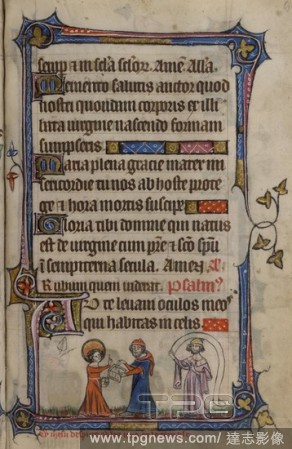 semp & in secla sclor. Amē. Alla.
Memento salutis auctor quod
nostri quondam corporis ex illi
bata virgine nascendo formam
sumpseris
Maria plena gracie mater mi
sericordie tu nos ab hoste prote
ge & hora mortis suscipe
Gloria tibi domine qui natus
est de virgine cum pr̄e & sc̄o spū
in sempiterna secula. Amen. A.
Rubum quem viderat. Psalm?
Ad te levavi oculos meos
qui habitas in celis
TPG
www.tpgnews.com / 達志影像